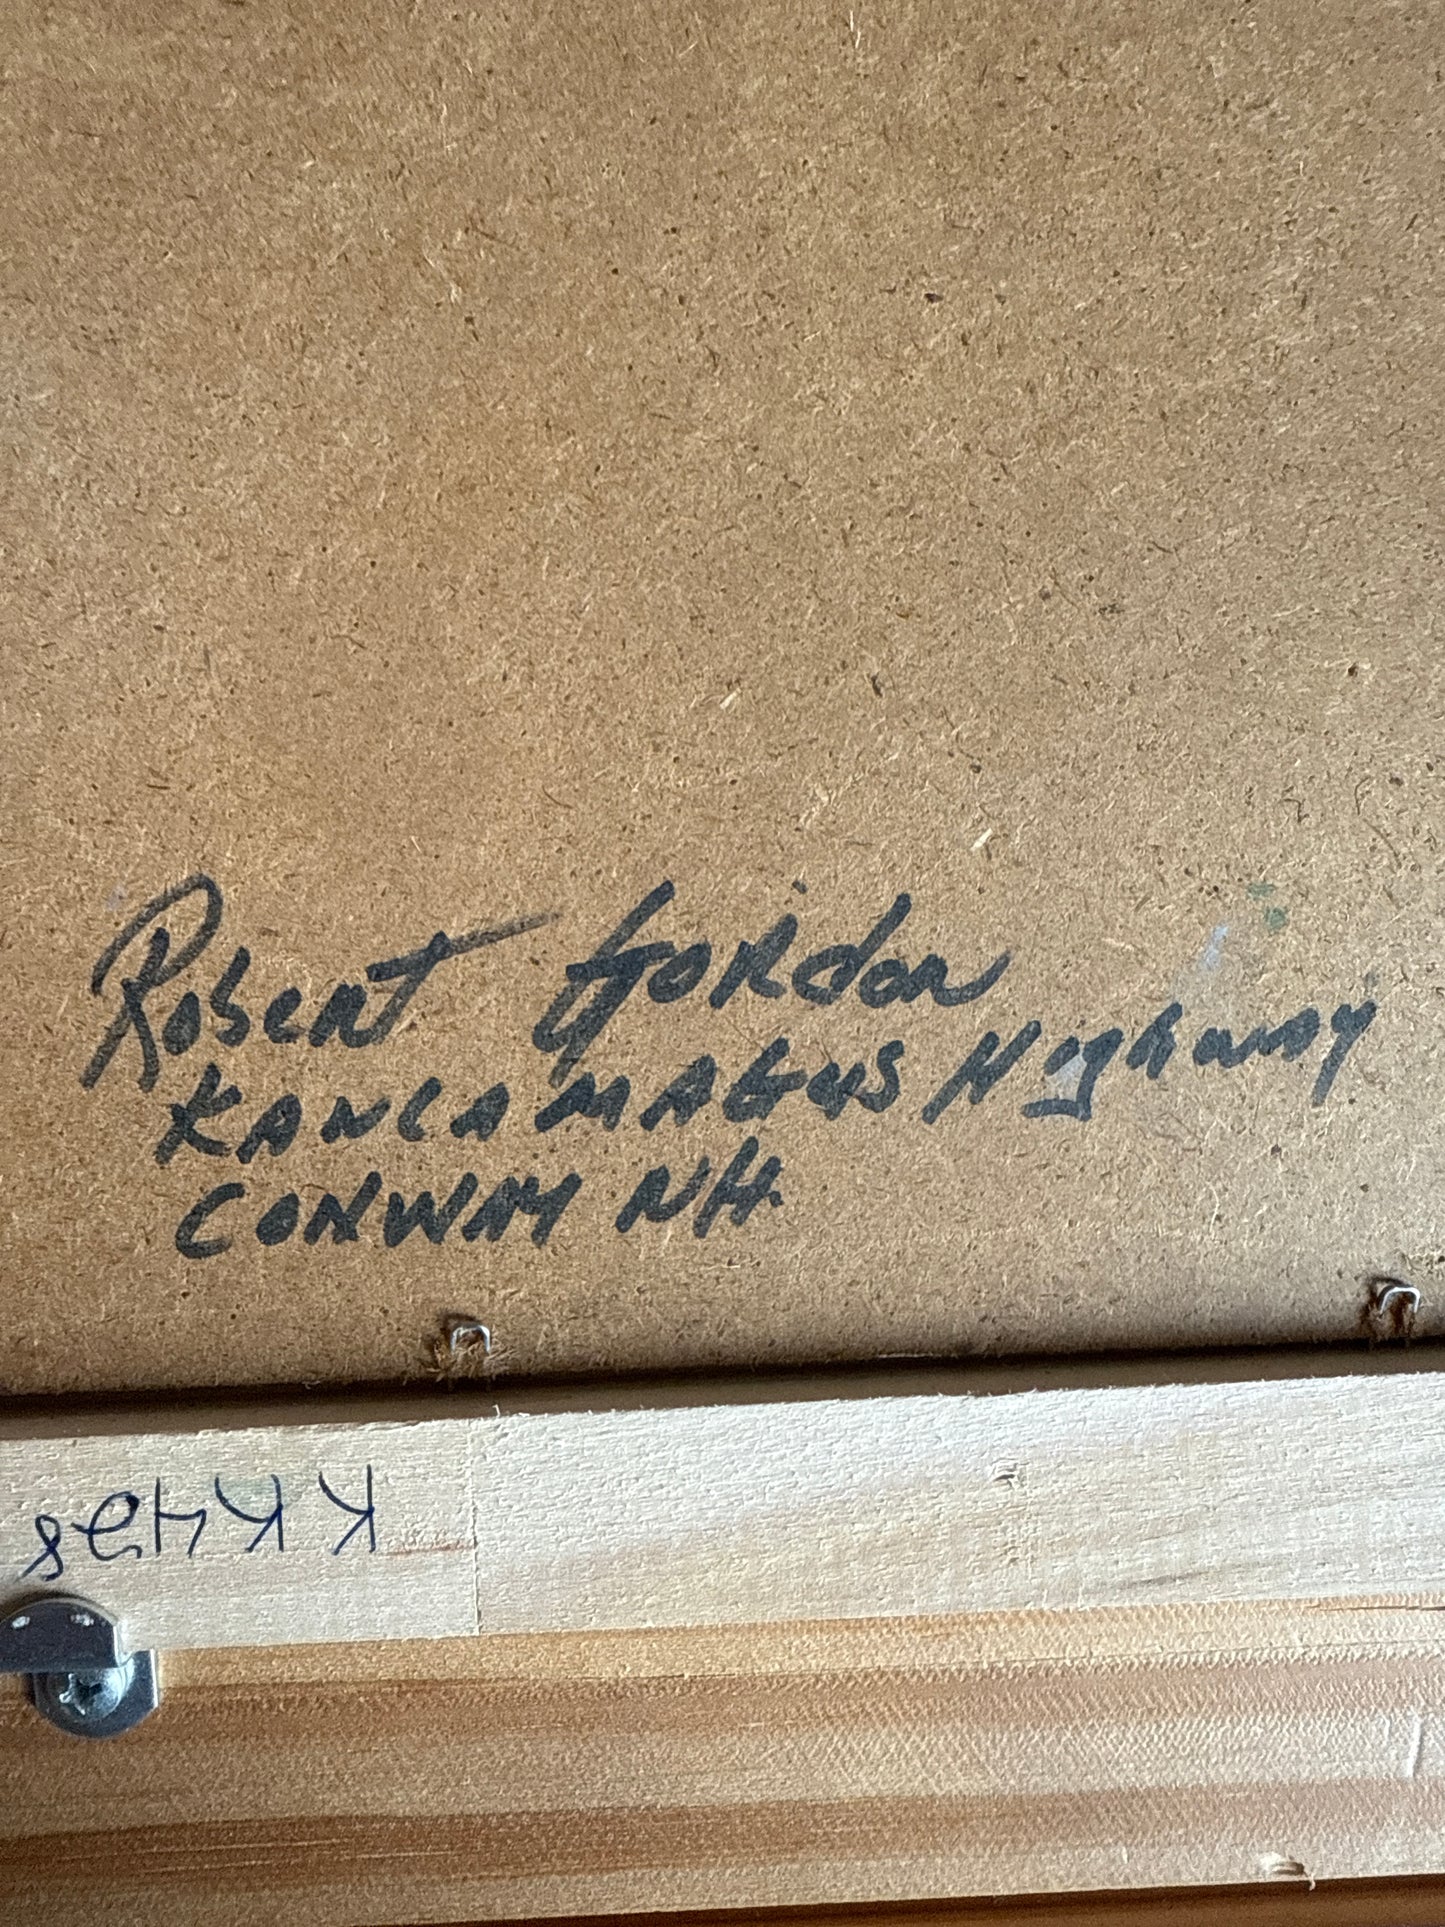 Robert Gordon
KANCAMAGUS Highway
CONWAY NH.
KK498